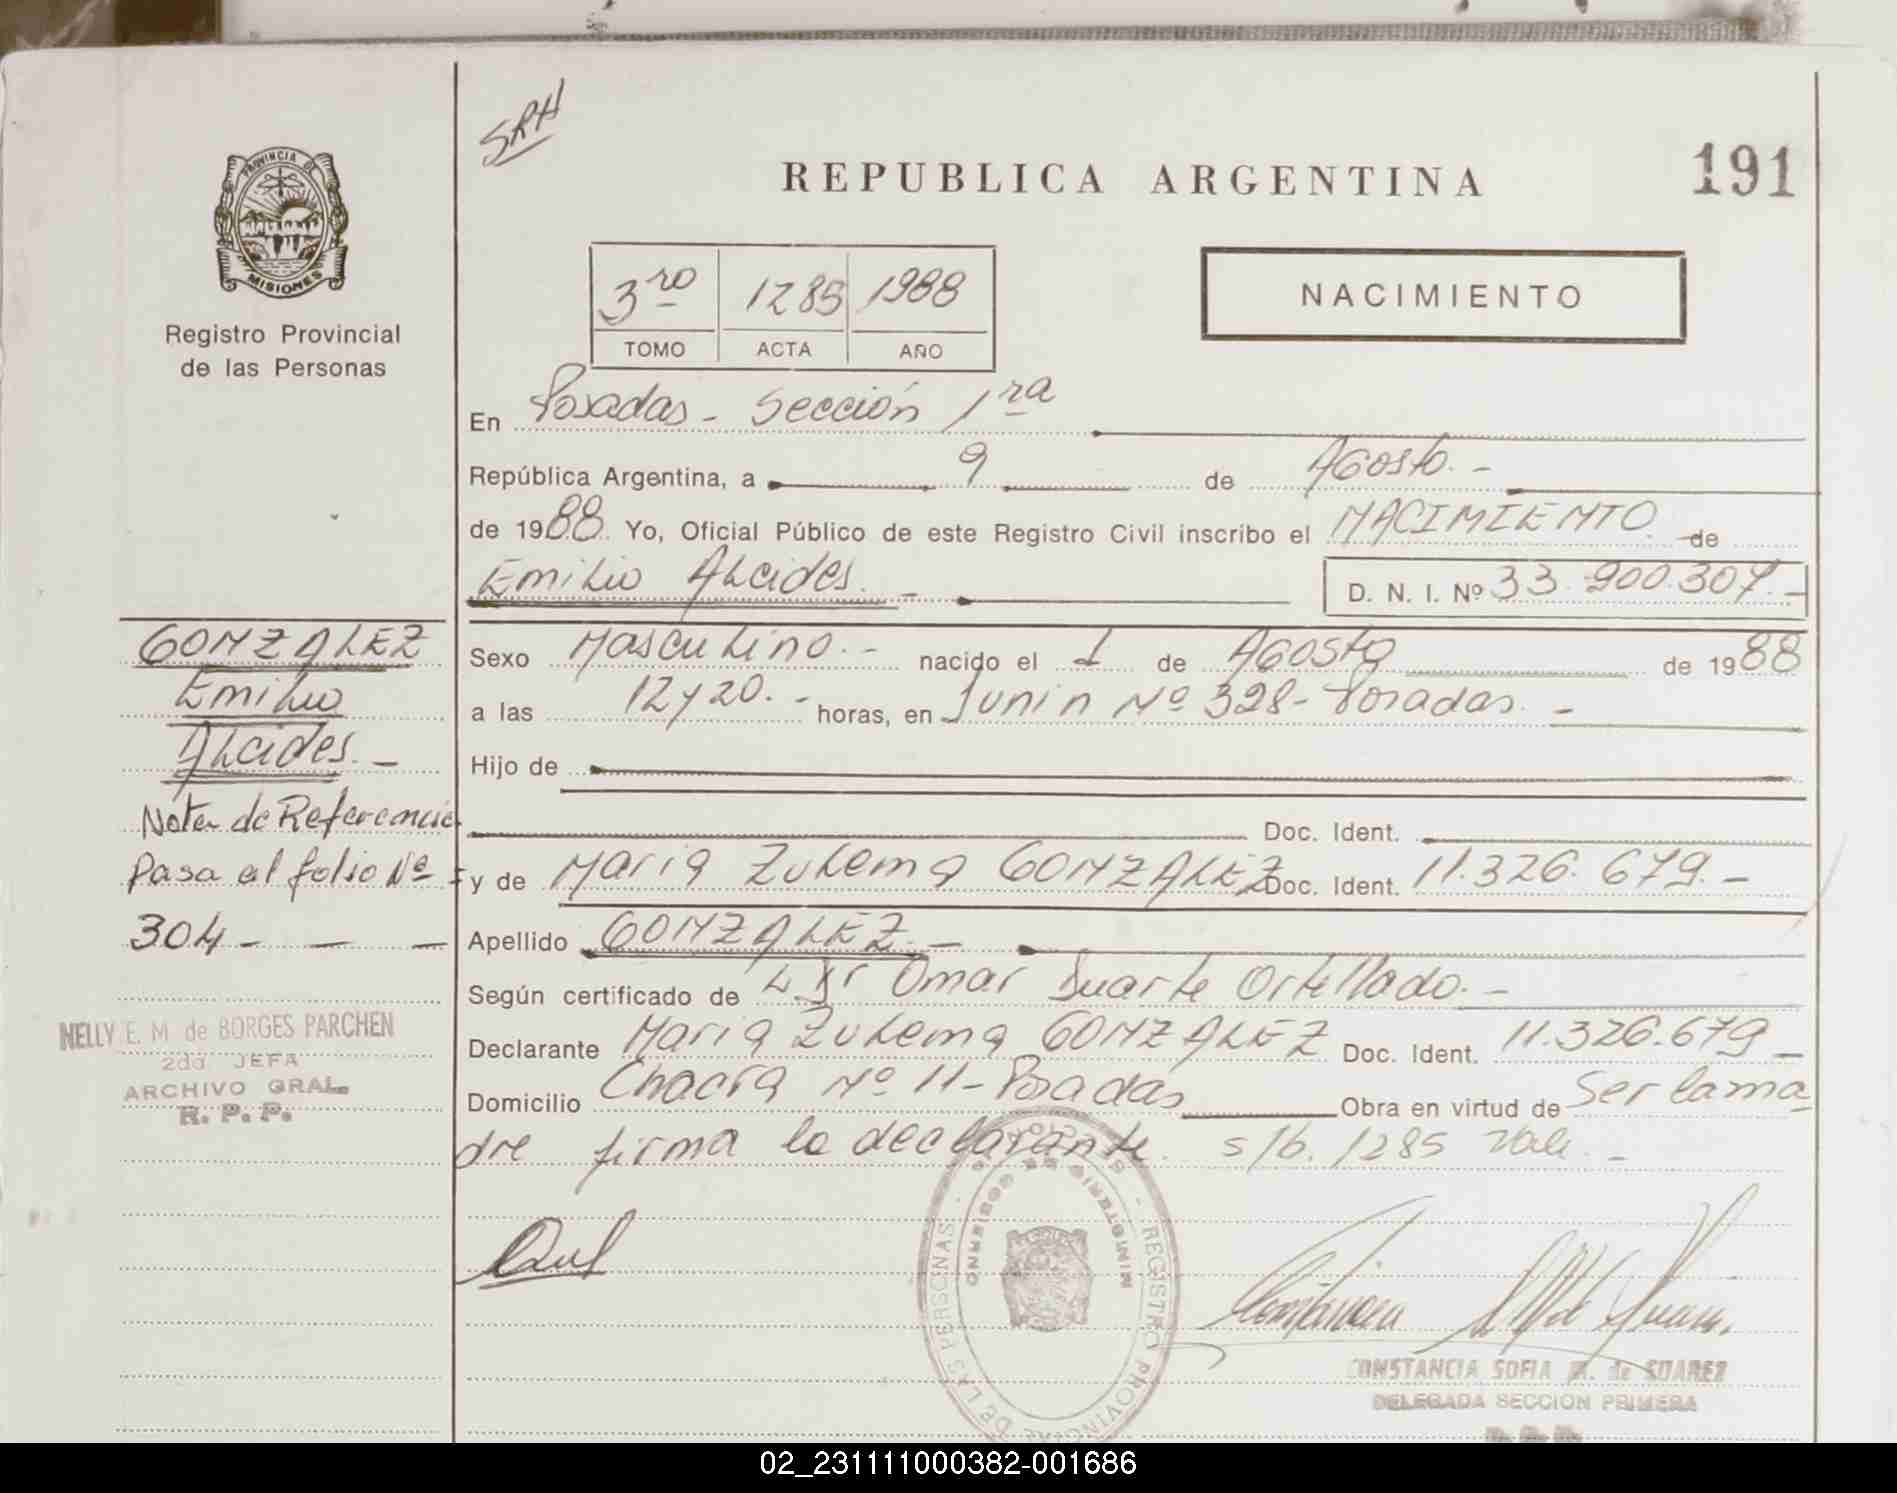 SRH
PROVINCIA DE
MISIONES
Registro Provincial
de las Personas
REPUBLICA ARGENTINA
191
3ro 1285 1988
TOMO ACTA AÑO
NACIMIENTO
En Posadas - Sección 1ra
República Argentina, a 9 de Agosto. -
de 1988. Yo, Oficial Público de este Registro Civil inscribo el NACIMIENTO de
Emilio Alcides. -
D. N. I. Nº 33.900.307. -
GONZALEZ
Emilio
Alcides. -
Nota de Referencia
Pasa al folio Nº
304 - - -
NELLY E. M. de BORGES PARCHEN
2da JEFA
ARCHIVO GRAL.
R. P. P.
Sexo Masculino. - nacido el 1 de Agosto de 1988
a las 12 y 20. - horas, en Junin Nº 328 - Posadas. -
Hijo de
Doc. Ident.
y de Maria Zulema GONZALEZ Doc. Ident. 11.326.679. -
Apellido GONZALEZ. -
Según certificado de Dr Omar Duarte Ortellado. -
Declarante Maria Zulema GONZALEZ Doc. Ident. 11.326.679 -
Domicilio Chacra Nº 11 - Posadas Obra en virtud de Ser la ma
dre firma la declarante. s/b. 1285 Vale. -
REGISTRO PROVINCIAL DE LAS PERSONAS
MINISTERIO DE GOBIERNO
CONSTANCIA SOFIA M. de SUAREZ
DELEGADA SECCION PRIMERA
R. P. P.
02_231111000382-001686